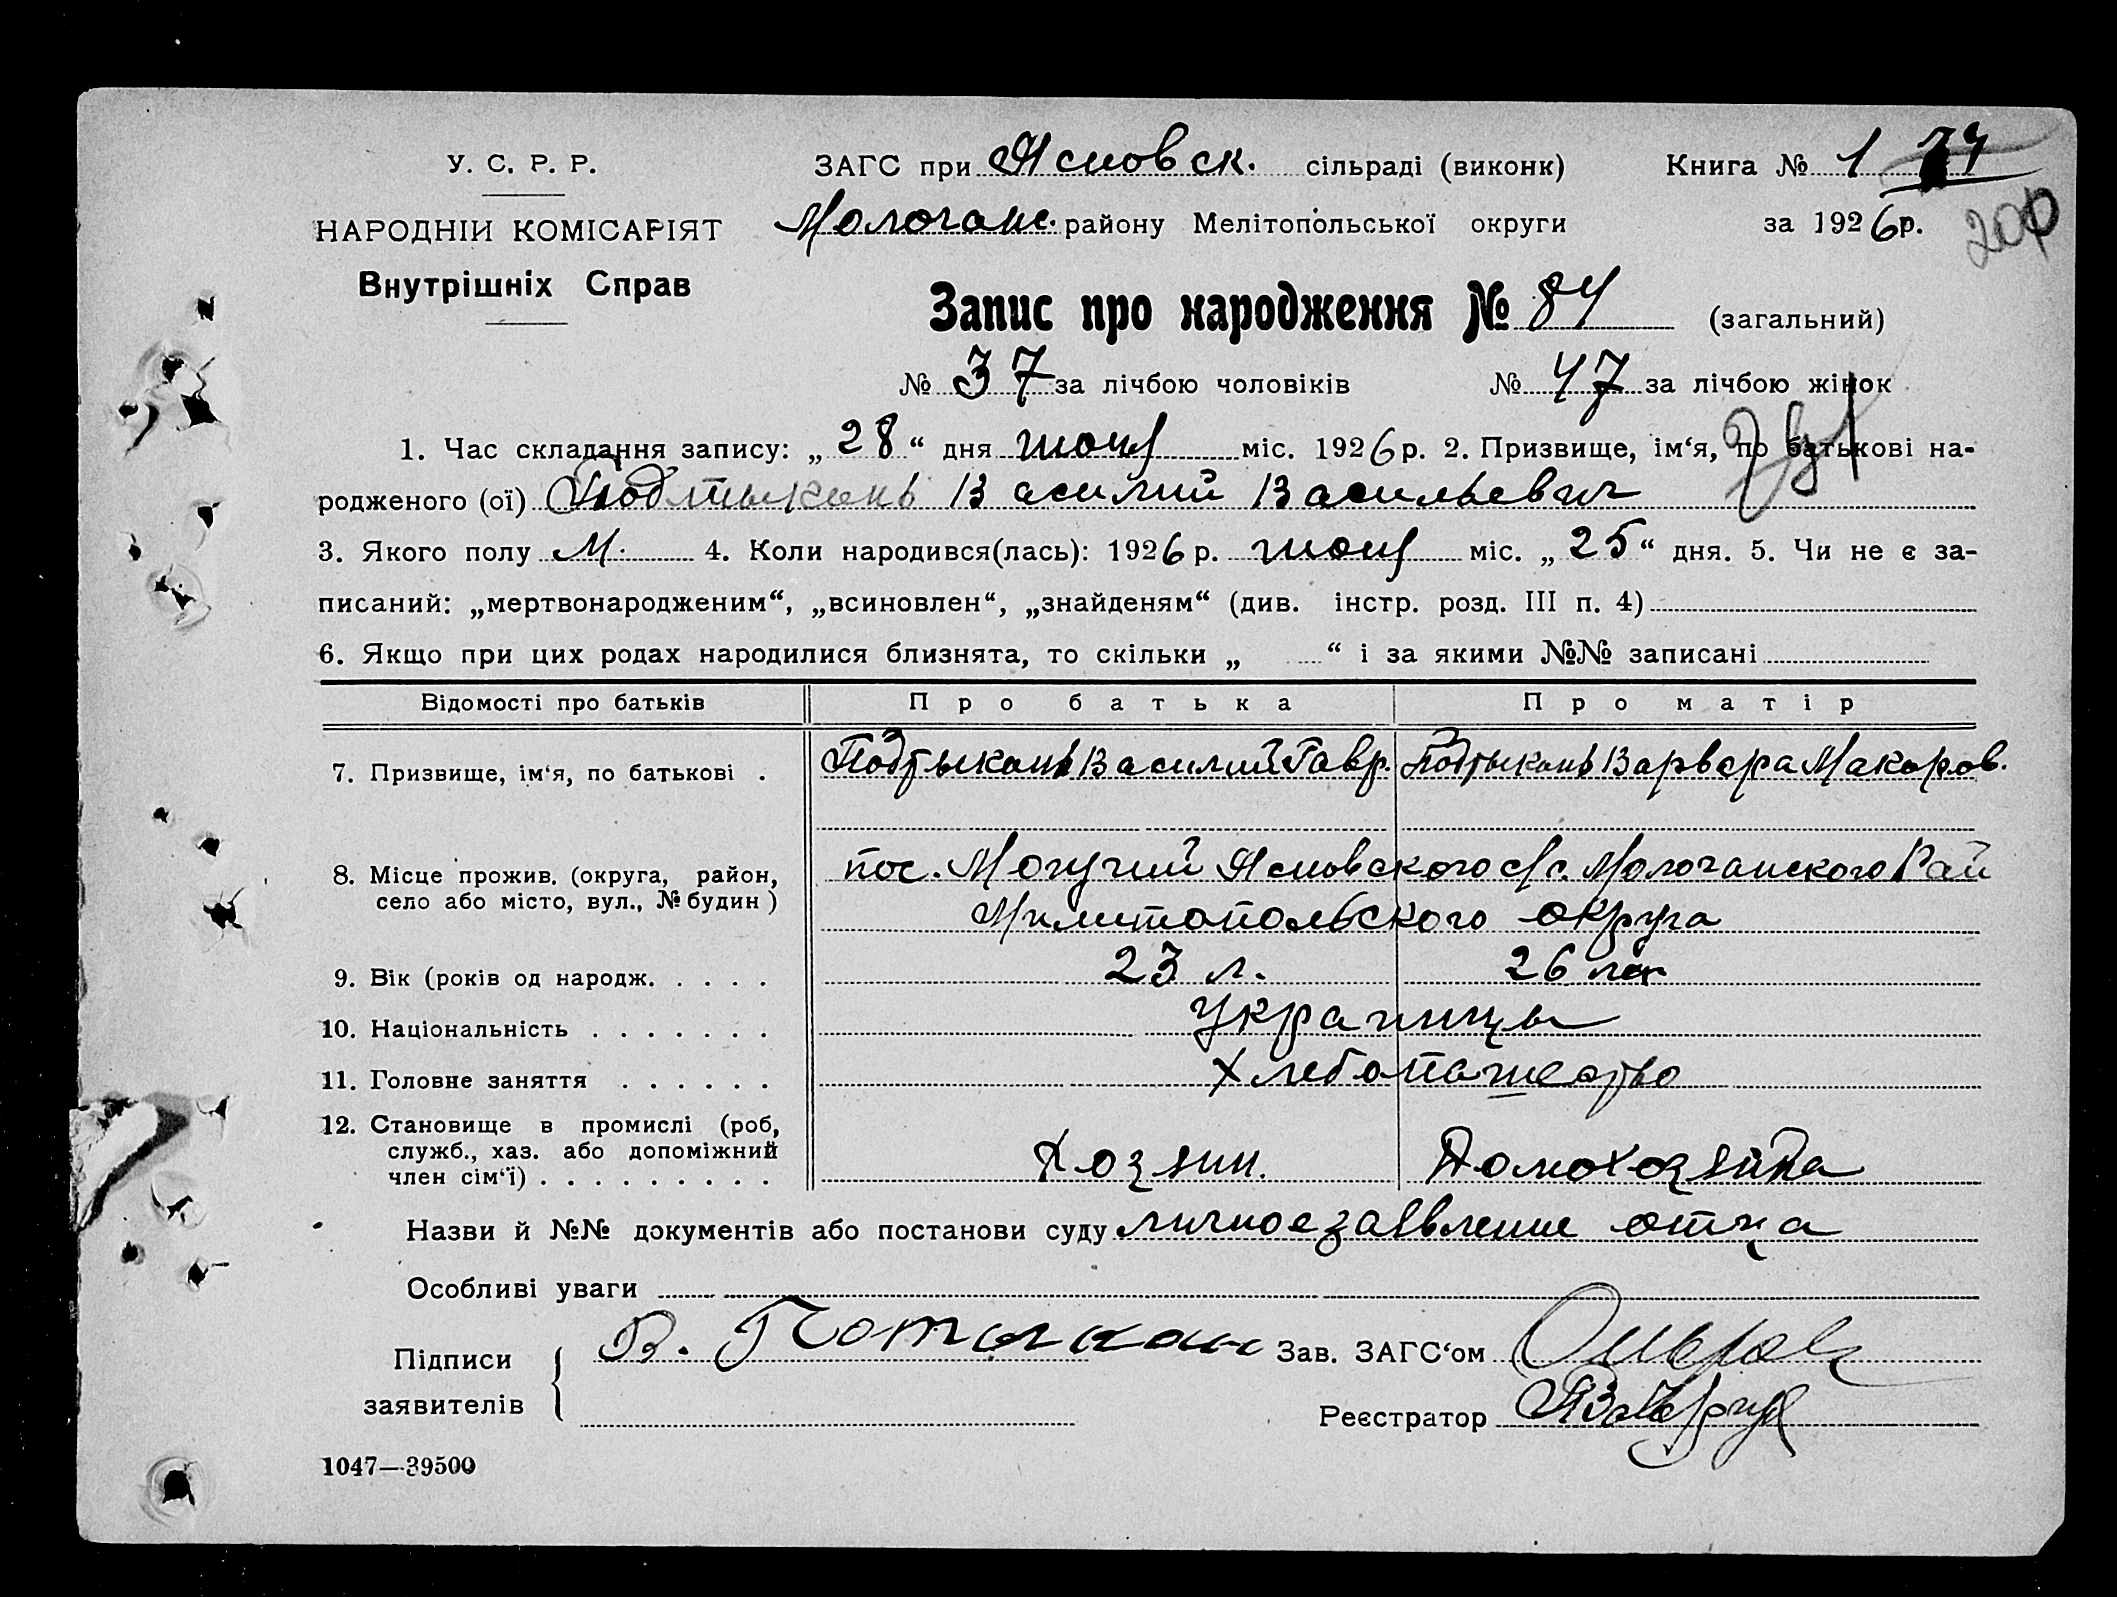 У. С. Р. Р.
НАРОДНІЙ КОМІСАРІЯТ
Внутрішніх Справ
ЗАГС при Ясновск. сільраді (виконк)
Молочанс. району Мелітопольської округи
Книга № 1 74
за 1926 р.
200
Запис про народження № 84 (загальний)
№ 37 за лічбою чоловіків № 47 за лічбою жінок
1. Час складання запису: „28“ дня июня міс. 1926 р. 2. Призвище, ім‘я, по батькові на-
родженого (ої) Подтыкань Василий Васильевич
3. Якого полу М. 4. Коли народився(лась): 1926 р. июня міс. „25“ дня. 5. Чи не є за-
писаний: „мертвонародженим“, „всиновлен“, „знайденям“ (див. інстр. розд. III п. 4)
6. Якщо при цих родах народилися близнята, то скільки „ “ і за якими №№ записані
Відомості про батьків Про батька Про матір
7. Призвище, ім‘я, по батькові . Подтыкань Василий Гавр. Подтыкань Варвара Макаров.
8. Місце прожив. (округа, район,
село або місто, вул., № будин) пос. Могучий Ясновского с/с. Молочанского Рай
Милитопольского округа
9. Вік (років од народж. . . . . 23 л. 26 лет
10. Національність . . . . . . . Украинцы
11. Головне заняття . . . . . . Хлебопашество
12. Становище в промислі (роб,
служб., хаз. або допоміжний
член сім‘ї) . . . . . . . . . Хозяин. Домохозяйка
Назви й №№ документів або постанови суду личное заявление отца
Особливі уваги
Підписи
заявителів
В. Потыкань
Зав. ЗАГС‘ом
Реєстратор
1047—39500